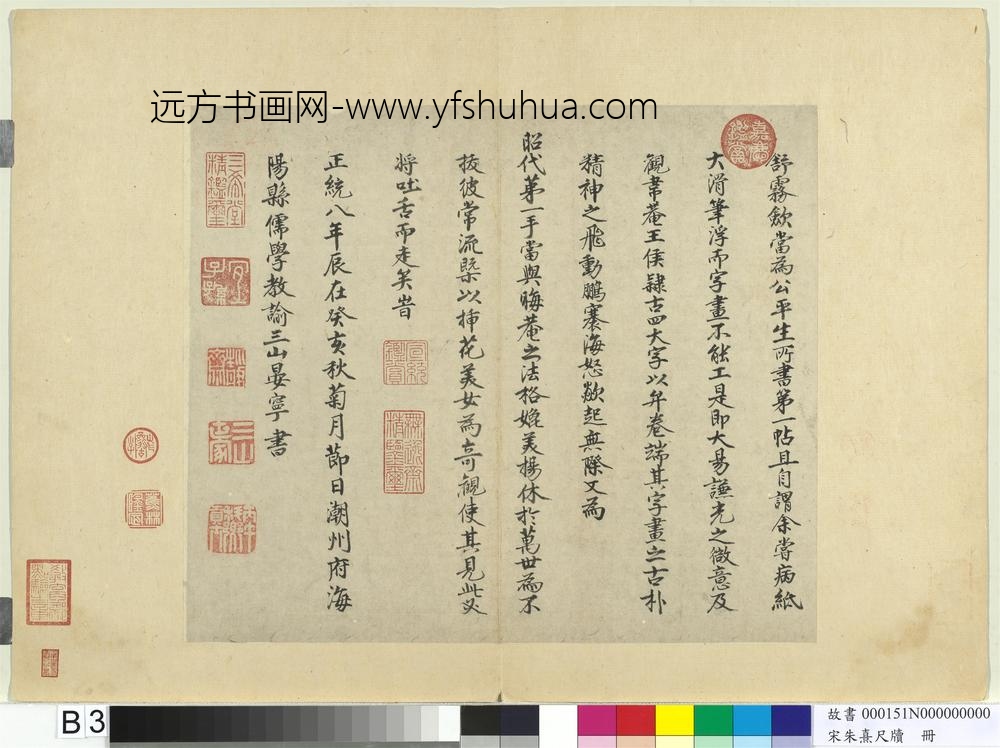 远方书画网-www.yfshuhua.com
舒霧歛當為公平生所書第一帖且自謂余嘗病紙
大滑筆浮而字畫不能工是即大易謙光之微意及
觀韋菴王侯隸古四大字以弁卷端其字畫之古朴
精神之飛動鵬騫海怒歘起無際又為
昭代第一手當與晦菴之法格媲美揚休於萬世為不
拔彼常流槩以揷花美女為奇觀使其見此必
將吐舌而走矣旹
正統八年辰在癸亥秋菊月節日潮州府海
陽縣儒學教諭三山晏寧書
嘉慶鑑賞
三希堂精鑑璽
宜子孫
宣統鑑賞
無逸齋精鑑璽
三山
B 3
故書 000151N000000000
宋朱熹尺牘 冊